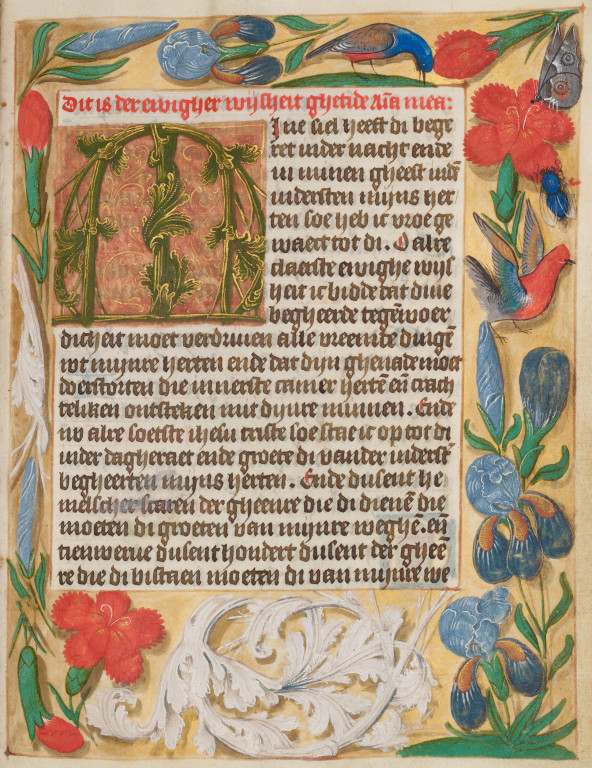 Dit is der ewigher wijsheit ghetide Aīa mea:
Mine siel heeft di bege
ret inder nacht ende
in minen gheest inđ
indersten mijns her
ten soe heb ic vroe ge
waect tot di. O alre
claerste ewighe wijs
heit ic bidde dat dine
begheerde tegēwoer
dicheit moet verdriuen alle vreemde dingē
wt mijnre herten ende dat dijn ghenade moet
doerstorten die innerste camer hertē eñ crach
teliken ontsteken mit dijnre minnen. Ende
nv alre soetste ihesu criste soe stae ic op tot di
inder dagheraet ende groete di vander inderst̄
begheerten mijns herten. Ende dusent he
melscher scaren der gheenre die di dienē die
moeten di groeten van mijnre weghē. eñ
tienwerue dusent hondert dusent der gheē
re die di bistaen moeten di van mijnre we